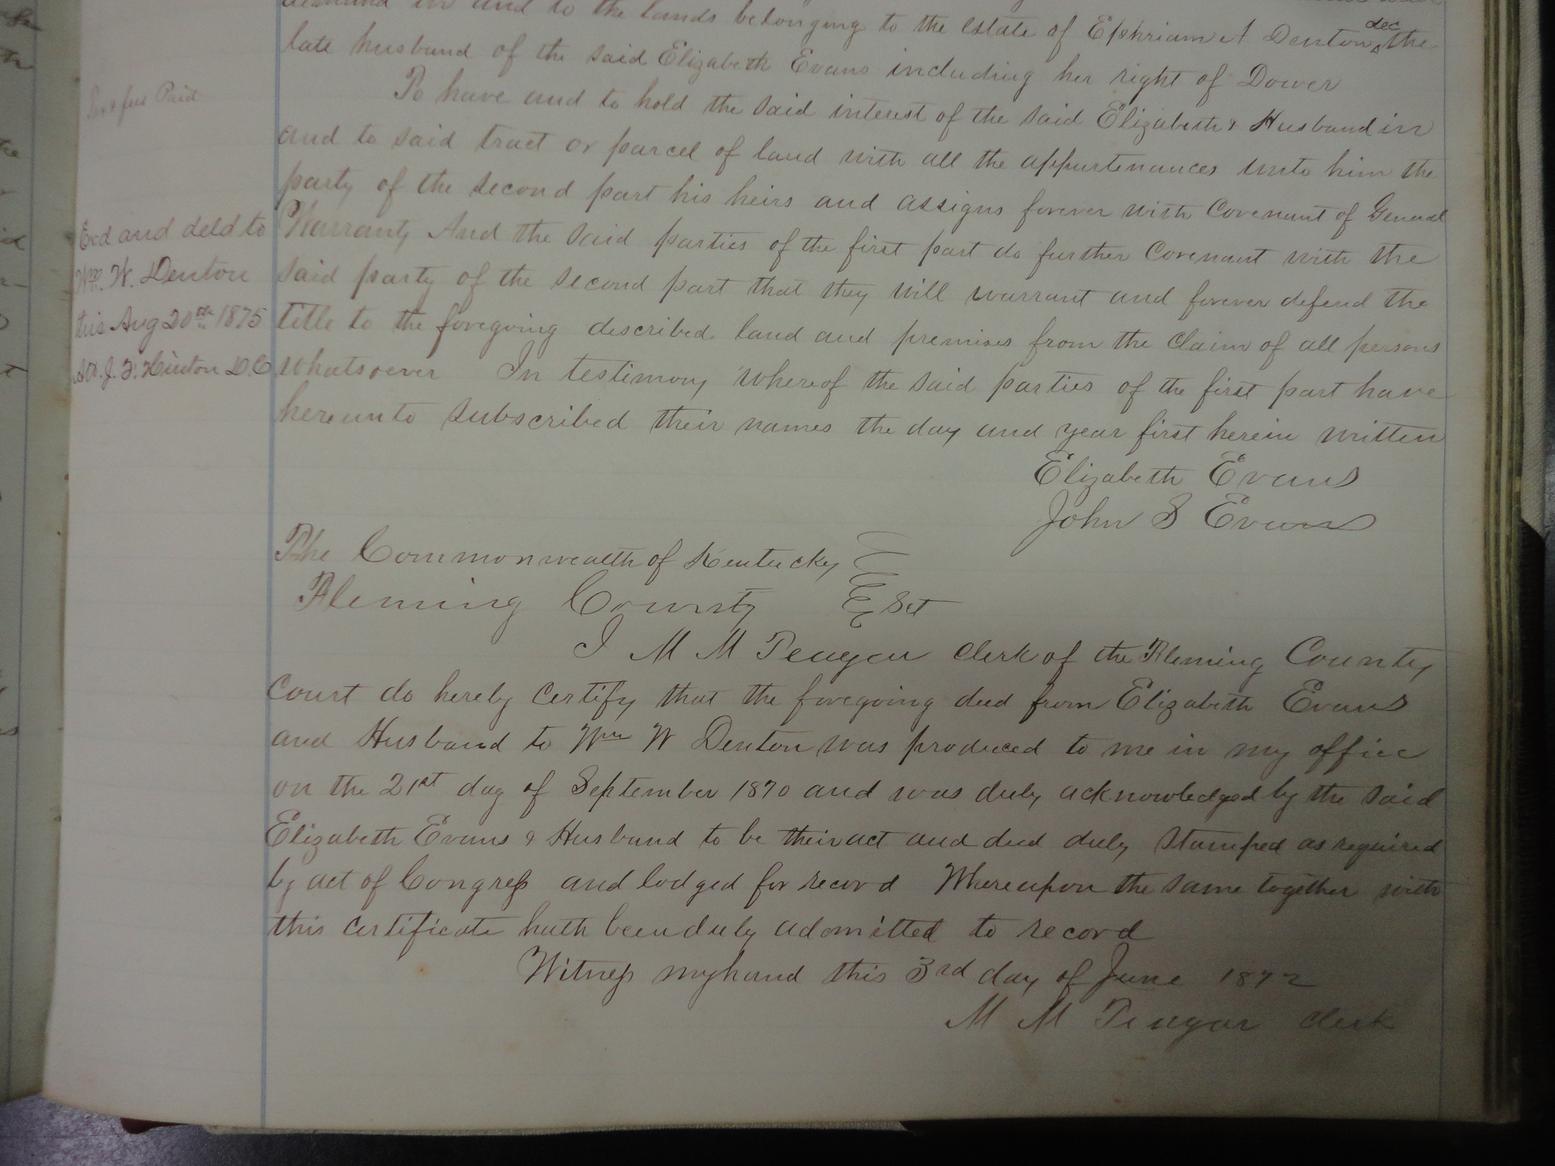 demand in and to the lands belonging to the estate of Ephriam A Denton dec the
late husband of the said Elizabeth Evans including her right of Dower
To have and to hold the said interest of the said Elizabeth & Husband in
and to said tract or parcel of land with all the appurtenances unto him the
party of the second part his heirs and assigns forever with Covenant of General
Warranty And the said parties of the first part do further Covenant with the
said party of the second part that they will warrant and forever defend the
title to the foregoing described land and premises from the Claim of all persons
whatsoever In testimony whereof the said parties of the first part have
hereunto subscribed their names the day and year first herein written
Elizabeth Evans
John S Evans
The Commonwealth of Kentucky
Fleming County Sct
I M M Teagar Clerk of the Fleming County
Court do hereby Certify that the foregoing deed from Elizabeth Evans
and Husband to Wm W Denton was produced to me in my office
on the 21st day of September 1870 and was duly acknowledged by the said
Elizabeth Evans & Husband to be their act and deed duly Stamped as required
by act of Congress and lodged for record Whereupon the same together with
this certificate hath been duly admitted to record
Witness my hand this 3rd day of June 1872
M M Teagar Clerk
Paid
Exd and deld to
Wm. W. Denton
this Aug 20th 1875
J. F. Hinton D.C.